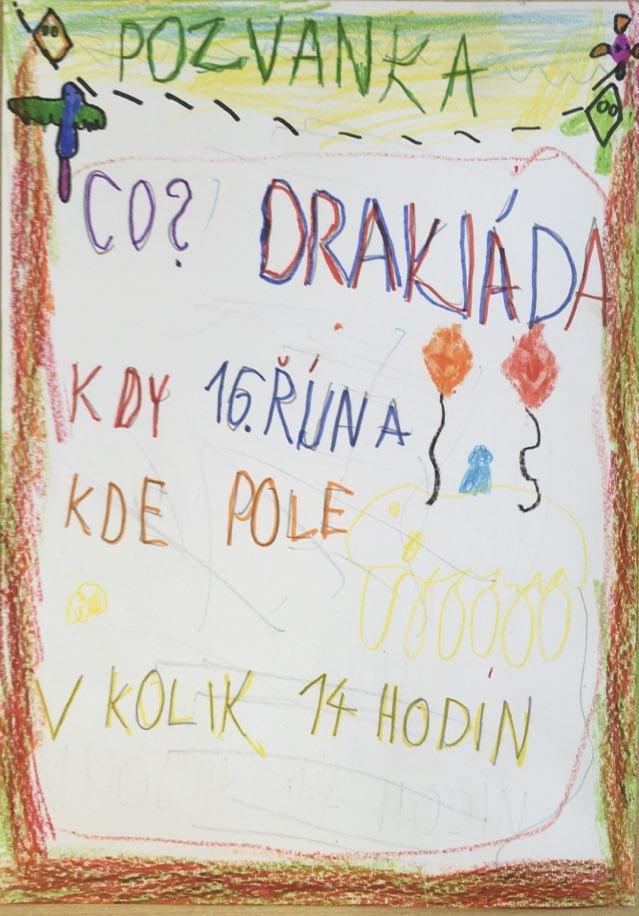 POZVANKA
CO? DRAKIÁDA
KDY 16. ŘÍJNA
KDE POLE
V KOLIK 14 HODIN